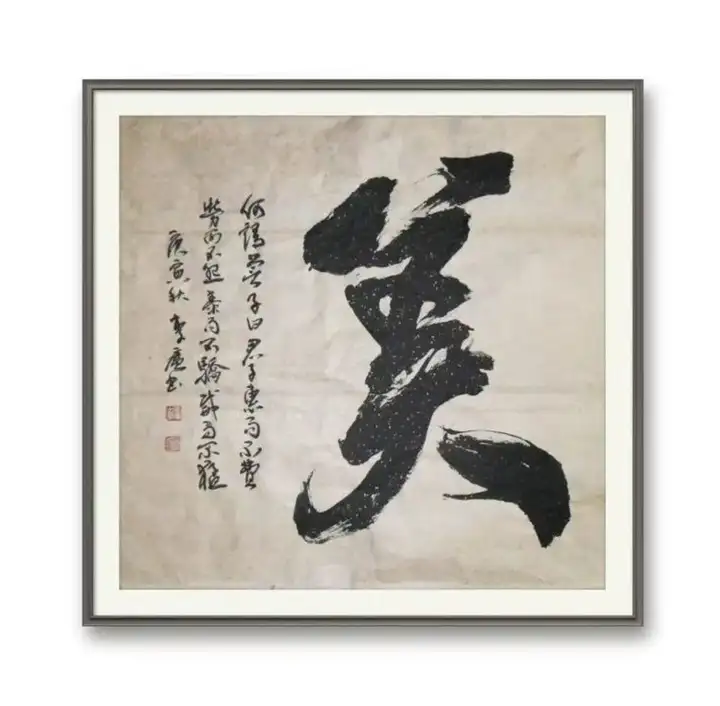 美
何謂美子曰君子惠而不費
勞而不怨泰而不驕威而不猛
庚寅秋李书